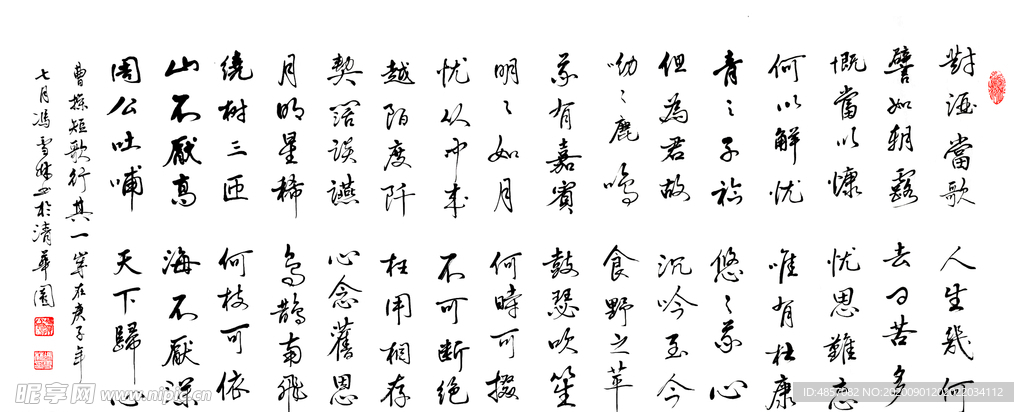 對酒當歌 人生幾何
譬如朝露 去日苦多
慨當以慷 忧思難忘
何以解忧 唯有杜康
青〻子衿 悠〻我心
但為君故 沉吟至今
呦〻鹿鳴 食野之苹
我有嘉賓 鼓瑟吹笙
明〻如月 何時可掇
忧从中来 不可断绝
越陌度阡 枉用相存
契阔谈讌 心念舊恩
月明星稀 烏鵲南飛
繞树三匝 何枝可依
山不厭高 海不厭深
周公吐哺 天下歸心
曹操短歌行其一 寫在庚子年
七月馮雪 於清華園
昵享网 www.nipic.cn